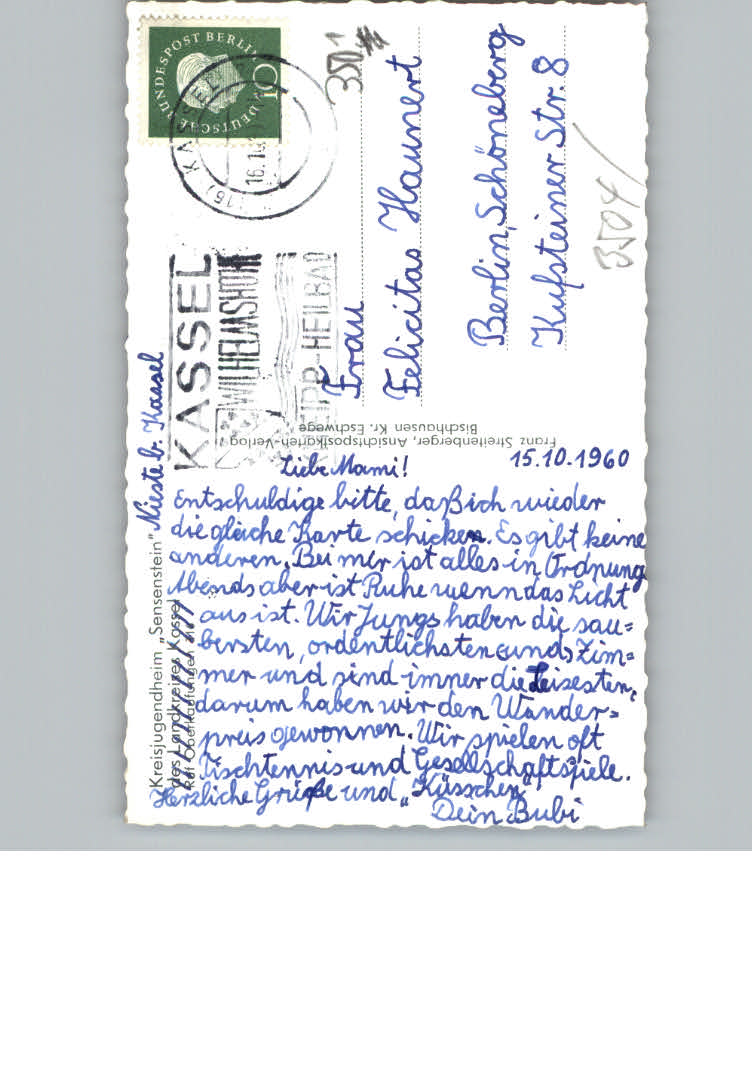 DEUTSCHE BUNDESPOST BERLIN
10
(16) KASSEL
16.10
KASSEL
WILHELMSHÖHE
KNEIPP-HEILBAD
3501
Frau
Felicitas Haunert
Berlin, Schöneberg
Kufsteiner Str. 8
3504
Franz Streitenberger, Ansichtspostkarten-Verlag
Bischhausen Kr. Eschwege
Kreisjugendheim „Sensenstein" Nieste b. Kassel
des Landkreises Kassel
Ruf Oberkaufungen
15.10.1960
Liebe Mami!
Entschuldige bitte, daß ich wieder
die gleiche Karte schicken. Es gibt keine
anderen. Bei mir ist alles in Ordnung
Abends aber ist Ruhe wenn das Licht
aus ist. Wir Jungs haben die sau=
bersten, ordentlichsten Zim=
mer und sind immer die leisesten,
darum haben wir den Wander=
preis gewonnen. Wir spielen oft
Tischtennis und Gesellschaftsspiele.
Herzliche Grüße und „Küsschen"
Dein Bubi